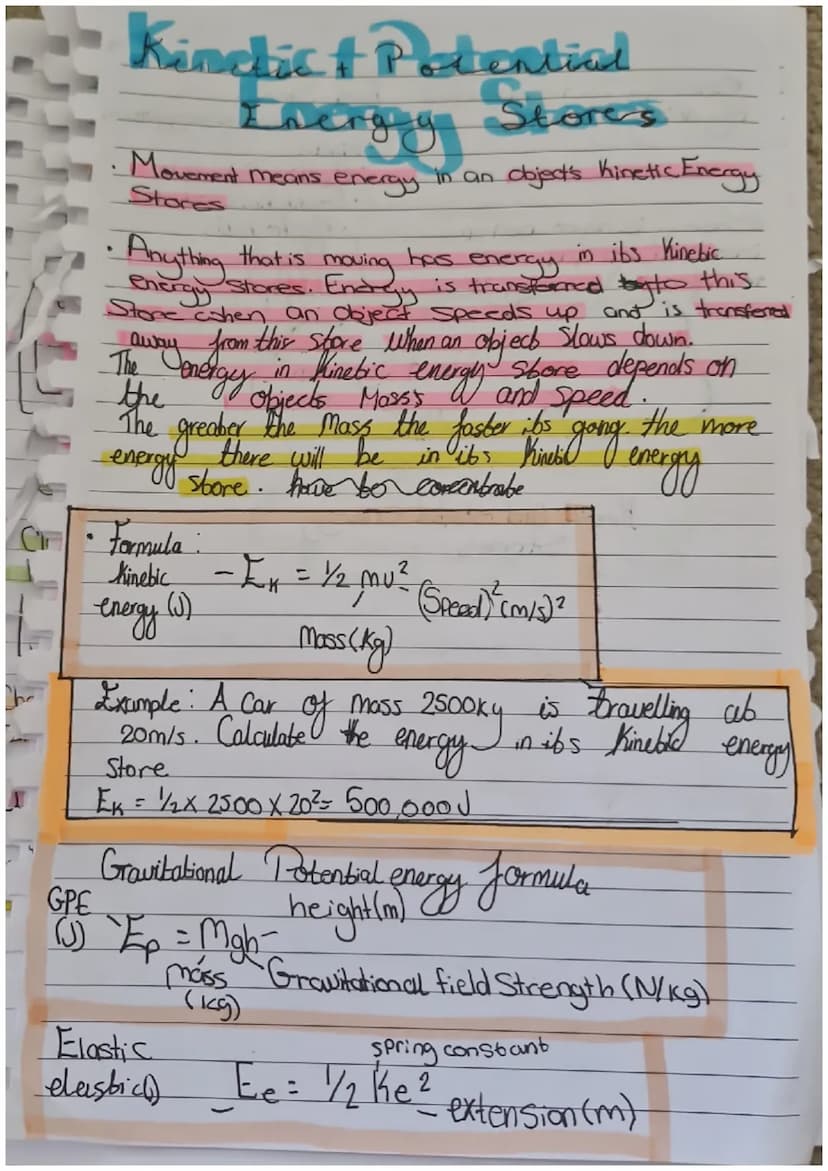 Kinetic + Potential
Energy Stores
· Movement means energy in an objects Kinetic Energy
Stores
· Anything that is moving has energy in its Kinetic
energy stores. Energy is transferred to this
Store when an object speeds up and is transfered
away from this store when an object slows down.
The energy in Kinetic energy store depends on
the objects Mass's and speed.
The greater the Mass the faster its going the more
energy there will be in its Kinetic energy
store. have to concentrate
· Formula:
Kinetic
energy (J)
- EK = 1/2 mv² (Speed)² (m/s)²
Mass (Kg)
Example: A Car of mass 2500kg is travelling at
20m/s. Calculate the energy in its Kinetic energy
Store
EK = 1/2 x 2500 x 20² = 500,000J
Gravitational Potential energy formula
GPE height (m)
(J) Ep = Mgh
mass Gravitational field Strength (N/kg)
(kg)
Elastic spring constant
elastic (J) Ee = 1/2 Ke²
extension (m)